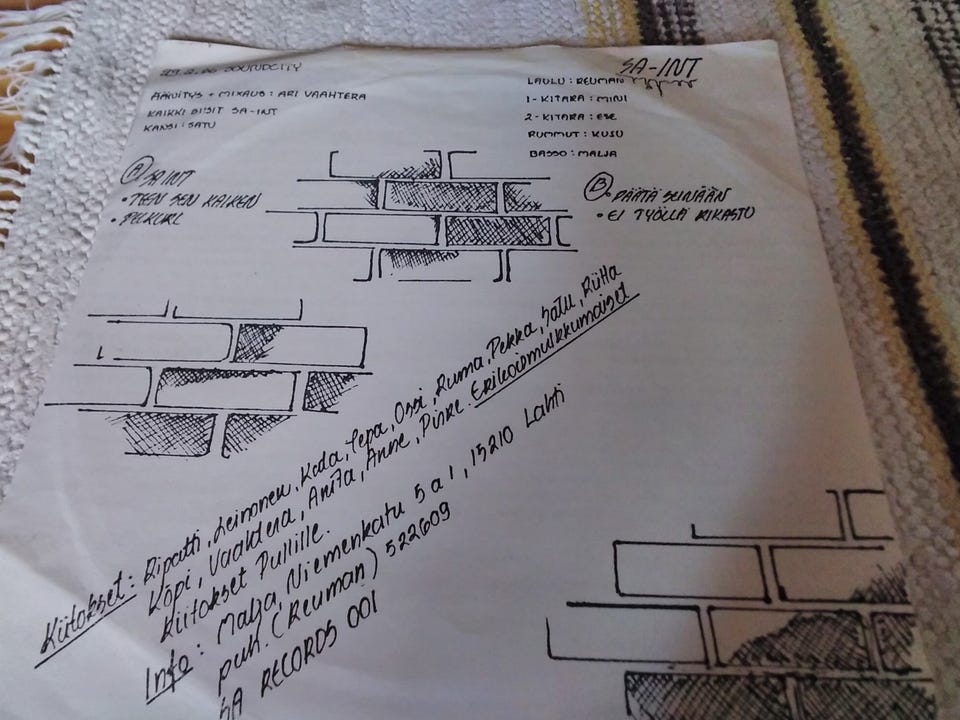 SOUNDCITY
ÄÄNITYS + MIXAUS : ARI VAAHTERA
KAIKKI BIISIT SA-INT
KANSI : SATU
SA-INT
LAULU : REUMAN
1-KITARA : MINI
2-KITARA : ESE
RUMMUT : KUSU
BASSO : MALJA
A SAINT
• TEEN SEN KAIKEN
• PELKURI
B • PÄÄTÄ SEINÄÄN
• EI TYÖLLÄ RIKASTU
Kiitokset : Ripatti, Leinonen, Koda, Tepa, Ossi, Ruma, Pekka, Satu, Riitta
Köpi, Vaahtera, Anita, Anne, Pirre. Erikoismulkkumaiset
Kiitokset Pullille.
Info : Malja, Niemenkatu 5 a 1, 15210 Lahti
puh. (Reuman) 522609
SA RECORDS 001